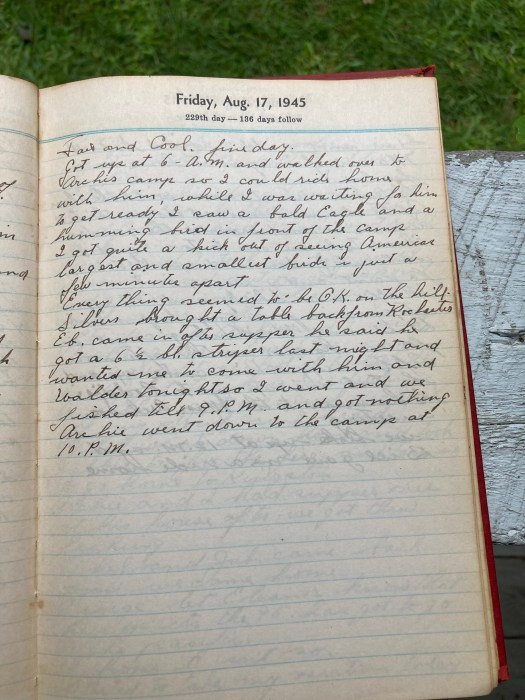 Friday, Aug. 17, 1945
229th day — 136 days follow
Fair and Cool. fine day.
Got up at 6 - A.M. and walked over to
Archis camp so I could ride home
with him, while I was waiting for him
to get ready I saw a bald Eagle and a
humming bird in front of the camp
I got quite a kick out of seeing Americas
largest and smallest birds in just a
few minutes apart
Every thing seemed to be O.K. on the hill.
Silvers brought a table back from Rochester
Eb. came in after supper he said he
got a 6½ lb. stryper last night and
wanted me to come with him and
Walder tonight so I went and we
fished till 9. P.M. and got nothing
Archie went down to the camp at
10. P.M.